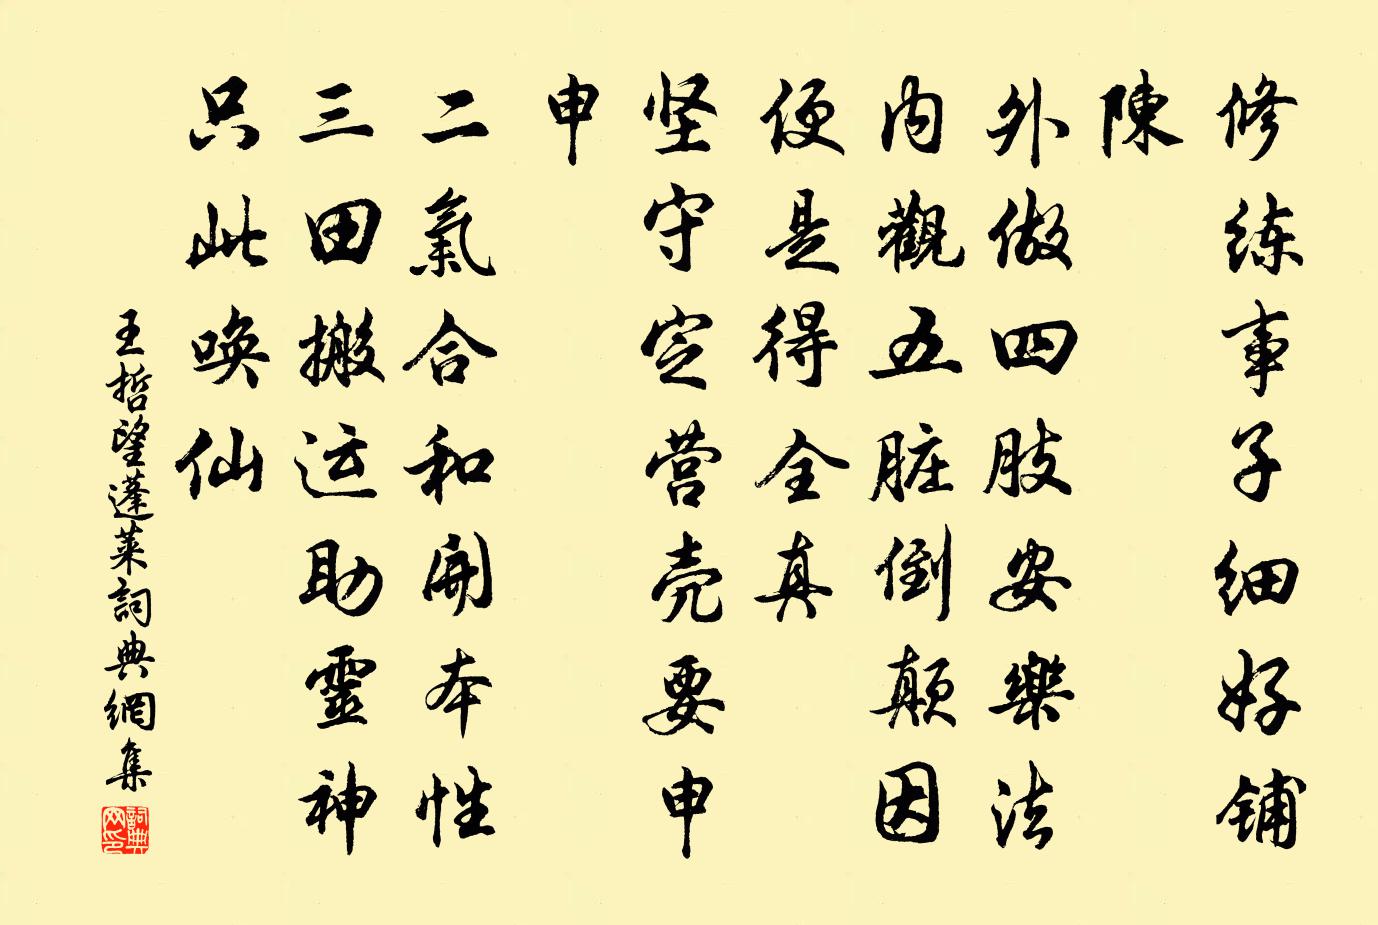 修练事子细好铺
陳
外做四肢安樂法
内觀五脏倒颠因
便是得全真
坚守定营壳要申
申
二氣合和開本性
三田搬运助靈神
只此唤仙
王哲望蓬莱詞典網集
詞典网印